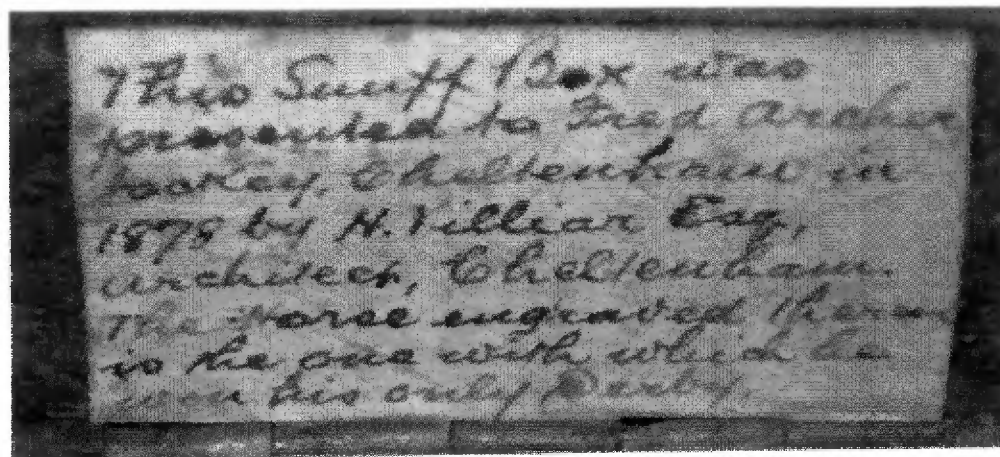 This Snuff Box was
presented to Fred Archer
Jockey, Cheltenham in
1878 by H. Villiar Esq,
architect, Cheltenham.
The Horse engraved
is the one with which he
won his only Derby.